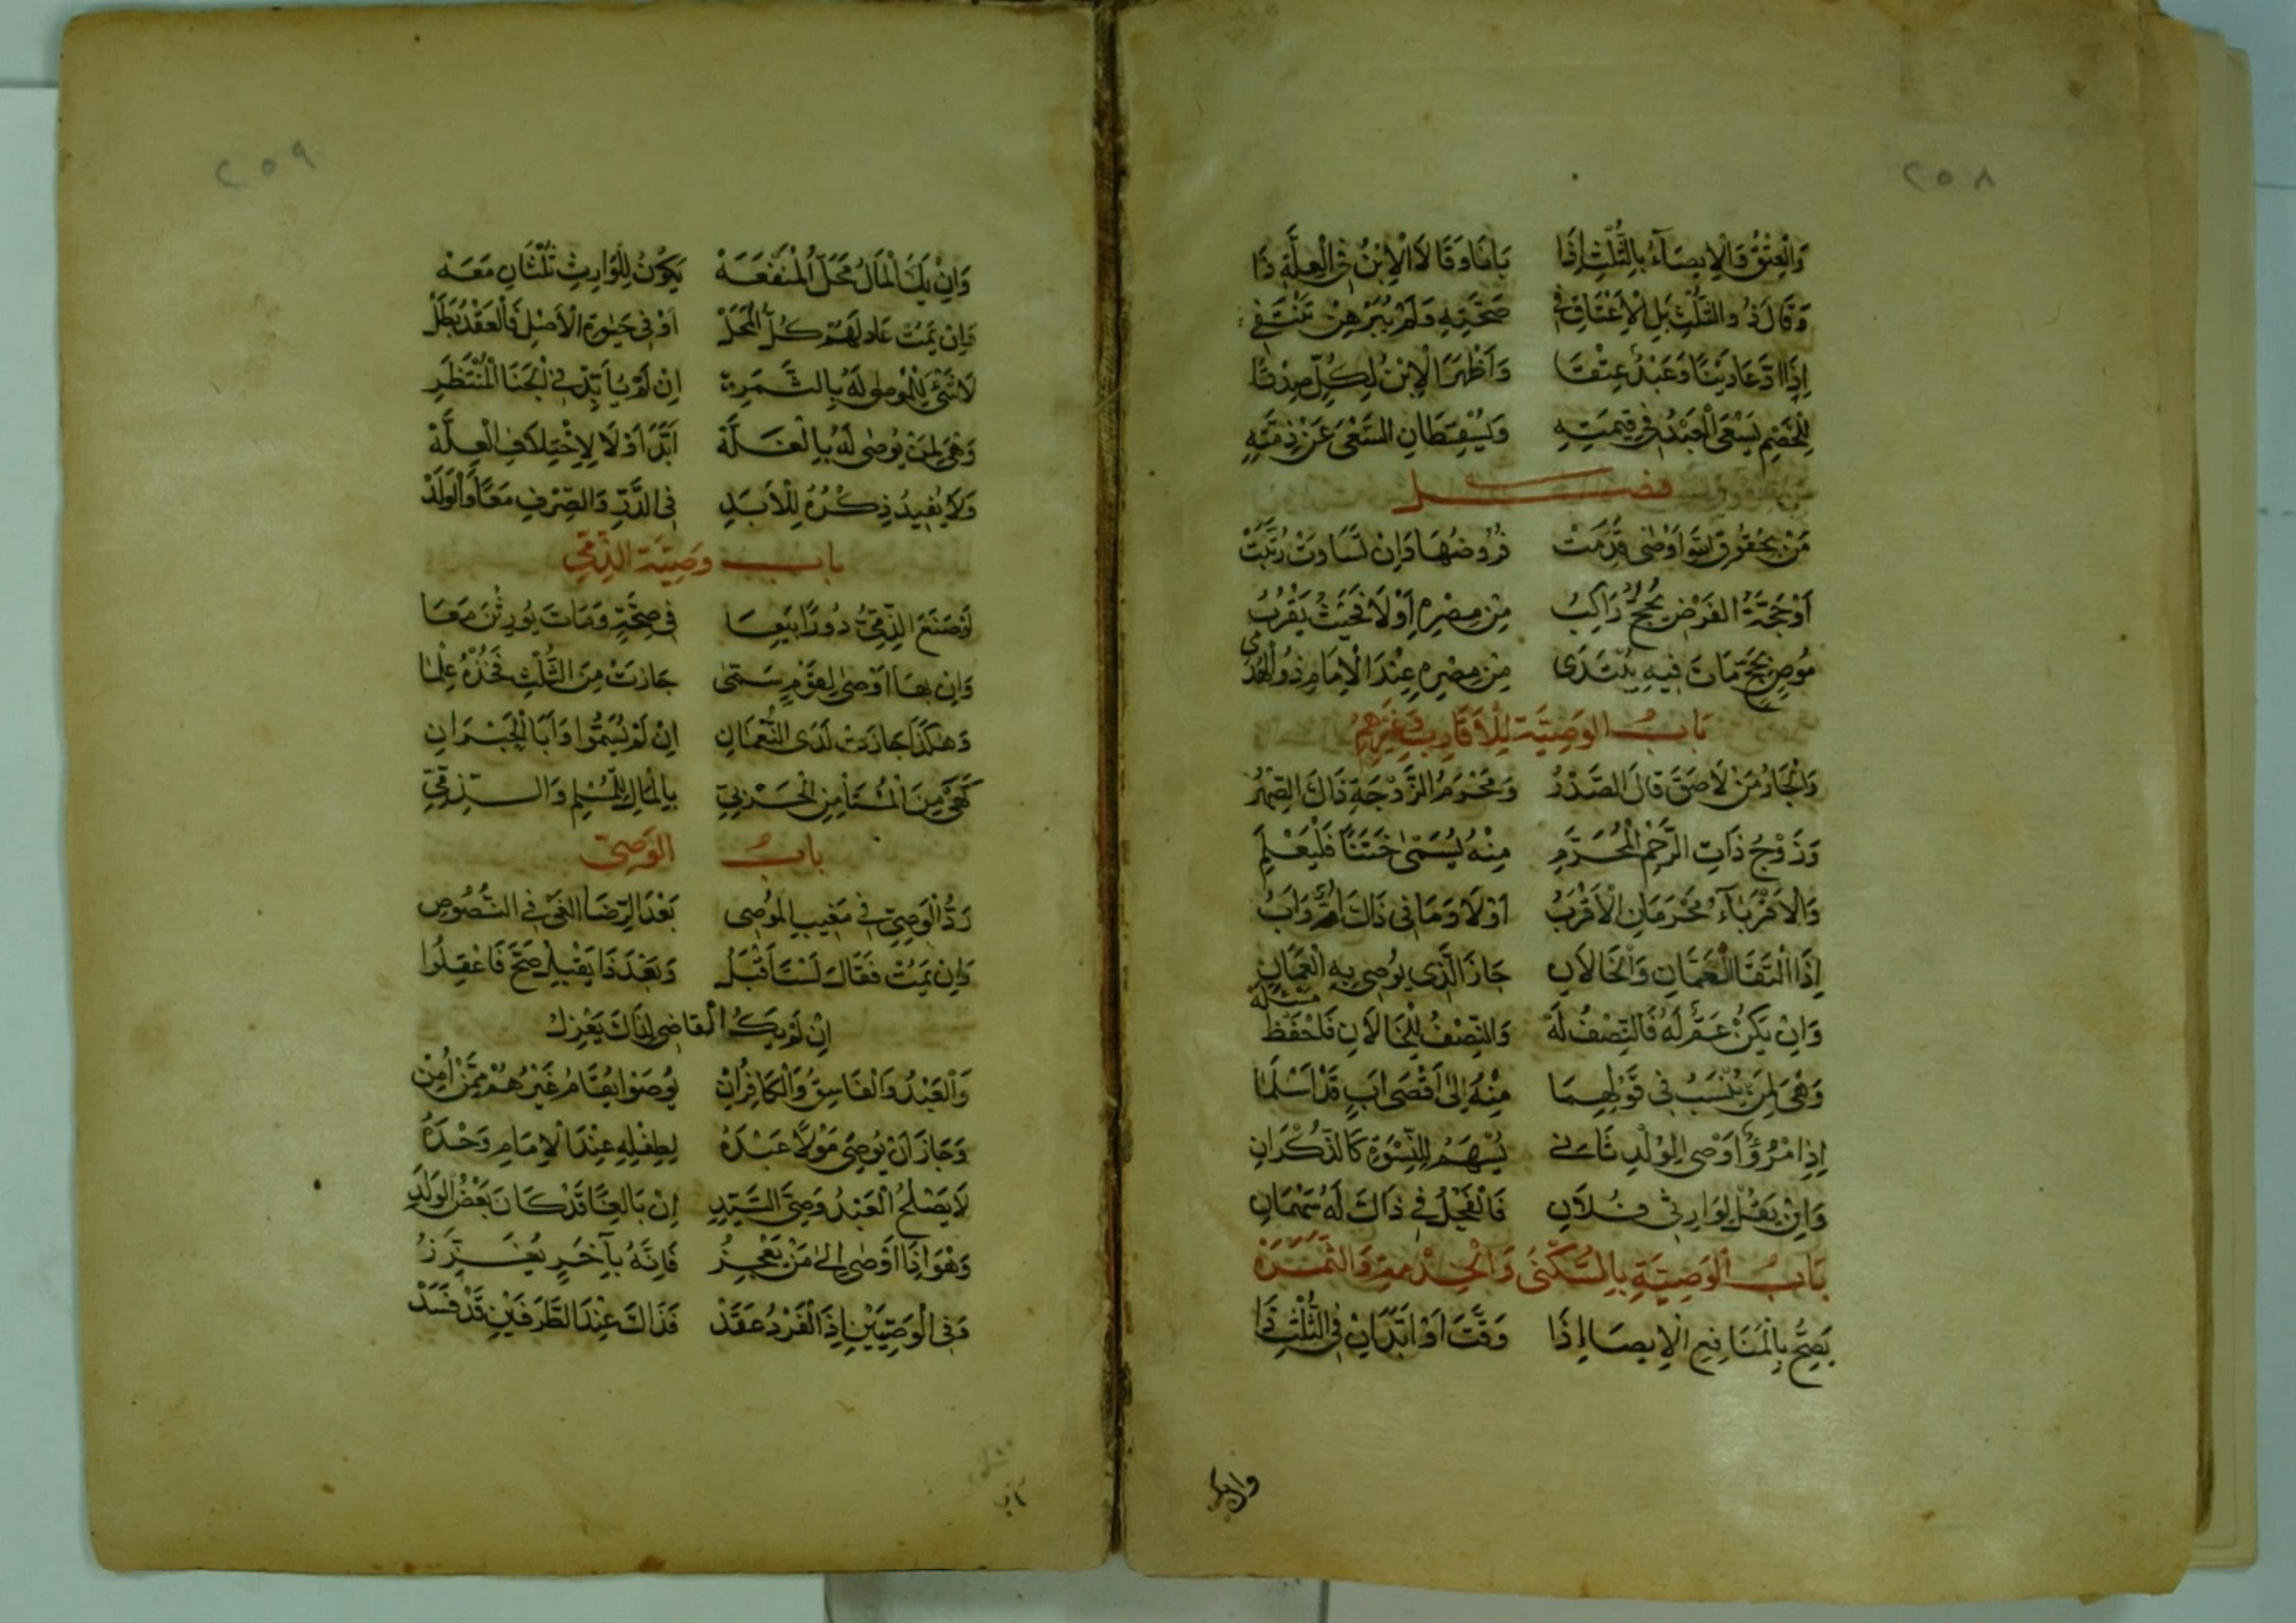 ٢٥٨
وَالْعِتْقُ وَالْإِيصَآءُ بِالثُّلُثِ إِذَا بَانَا وَقَالَا الْإِبْنُ فِى الْعِلَّةِ ذَا
وَقَالَ ذُو الثُّلُثِ بَلِ الْإِعْتَاقُ فِى صَحَّتِهِ وَلَمْ يُبَرْهِنْ يَنْتَفِى
إِذَا ادَّعَا دَيْنًا وَعَبْدٌ عِتْقَا وَأَظْهَرَ الْإِبْنُ لِكُلٍّ صِدْقَا
لِلْخَصْمِ يَسْعَى الْعَبْدُ فِى قِيمَتِهِ وَيُسْقِطَانِ السَّعْىَ عَنْ ذِمَّتِهِ
فصل
مَنْ بِحُقُوقِ اللَّهِ أَوْصَى قُدِّمَتْ فُرُوضُهَا وَإِنْ تَسَاوَتْ رُتِّبَتْ
أَوْ حَجَّةُ الْفَرْضِ يَحُجُّ رَاكِبُ مِنْ مِصْرِهِ أَوْ لَا فَحَيْثُ يَقْرُبُ
مُوصٍ بِحَجٍّ مَاتَ فِيهِ يُبْتَدَى مِنْ مِصْرِهِ عِنْدَ الْإِمَامِ ذُو الْهُدَى
بَابُ الوَصِيَّةِ لِلْأَقَارِبِ وَغَيْرِهِمْ
وَالْجَارُ مَنْ لَاصَقَ قَالَ الصَّدْرُ وَمَحْرَمُ الزَّوْجَةِ ذَاكَ الصِّهْرُ
وَزَوْجُ ذَاتِ الرَّحِمِ الْمُحَرَّمِ مِنْهُ يُسَمَّى خَتَنًا فَلْيُعْلَمِ
وَالْأَقْرِبَآءُ مَحْرَمَانِ الْأَقْرَبُ أَوْ لَا وَمَا فِى ذَاكَ أُمٌّ وَأَبُ
إِذَا الْتَقَا الْعَمَّانِ وَالْخَالَانِ حَازَ الَّذِى يُوصِى بِهِ الْعَمَّانِ
مسئلة
وَإِنْ يَكُنْ عَمٌّ لَهُ فَالنِّصْفُ لَهْ وَالنِّصْفُ لِلْخَالَانِ فَاحْفَظْ
وَهْىَ لِمَنْ يُنْسَبُ فِى قَوْلِهِمَا مِنْهُ إِلَى أَقْصَى أَبٍ قَدْ أَسْلَمَا
إِذِ امْرُؤٌ أَوْصَى لِوُلْدِ ثَانِى يُسْهَمُ لِلنِّسْوَةِ كَالذُّكْرَانِ
وَإِنْ يَقُلْ لِوَارِثِى فُلَانِ فَالْفَحْلُ فِى ذَاكَ لَهُ سَهْمَانِ
بَابُ الْوَصِيَّةِ بِالسُّكْنَى وَالْخِدْمَةِ وَالثَّمَرَةِ
يَصِحُّ بِالْمَنَافِعِ الْإِيصَا إِذَا وَقَّتَ أَوْ أَبَّدَ إِنْ فِى الثُّلْثِ ذَا
وان يك
٢٥٩
وَإِنْ يَكُ الْمَالُ مَحَلَّ الْمَنْفَعَهْ يَكُونُ لِلْوَارِثِ ثُلْثَانِ مَعَهْ
وَإِنْ يَمُتْ عَادَ لَهُمْ كُلُّ الْمَحَلْ أَوْ فِى حَيٰوةِ الْأَصْلِ فَالْعَقْدُ بَطَلْ
لَا شَىْءَ لِلْمُوصَى لَهُ بِالثَّمَرِهْ إِنْ لَمْ يُأَبِّدْ فِى الْجَنَا الْمُنْتَظَرِ
وَهْىَ لِمَنْ يُوصَى لَهُ بِالْغَلَّهْ أَبَّدَ أَوْ لَا لِاخْتِلَافِ الْعِلَّهْ
وَلَا يُفِيدُ ذِكْرُهُ لِلْأَبَدِ فِى الدَّرِّ وَالصُّوفِ مَعًا وَالْوَلَدْ
باب وَصِيَّةِ الذِّمِّىِّ
لَوْ صَنَعَ الذِّمِّىُّ دُورًا بِيَعَا فِى صِحَّةٍ وَمَاتَ يُورَثْنَ مَعَا
وَإِنْ بِهَا أَوْصَى لِقَوْمٍ سَمَّى جَازَتْ مِنَ الثُّلْثِ فَخُذْهُ عِلْمَا
وَهٰكَذَا جَازَتْ لَدَى النُّعْمَانِ إِنْ لَمْ يُسَمُّوا وَأَبَا الْحَبْرَانِ
كَهْىَ مِنَ الْمُسْتَأْمِنِ الْحَرْبِىِّ بِالْمَالِ لِلْمُسْلِمِ وَالذِّمِّىِّ
بابُ الوَصِىّ
رَدُّ الْوَصِىِّ فِى مَغِيبِ الْمُوصِى بَعْدَ الرِّضَا الْغِىْ فِى النُّصُوصِ
وَإِنْ يَمُتْ فَقَالَ لَسْتُ أَقْبَلُ وَبَعْدَ ذَا يَقْبَلُ صَحَّ فَاعْقِلُوا
إِنْ لَمْ يَكُ الْقَاضِى لِذَاكَ يَعْزِلُ
وَالْعَبْدُ وَالْفَاسِقُ وَالْكَافِرُ إِنْ يُوصَوْا يُقَامُ غَيْرُهُمْ مِمَّنْ أُمِنْ
وَجَازَ أَنْ يُوصِىَ مَوْلًا عَبْدَهُ لِطِفْلِهِ عِنْدَ الْإِمَامِ وَحْدَهُ
لَا يَصْلُحُ الْعَبْدُ وَصِىَّ السَّيِّدِ إِنْ بَالِغًا قَدْ كَانَ بَعْضُ الْوَلَدِ
وَهْوَ إِذَا أَوْصَى إِلَى مَنْ يَعْجِزُ فَإِنَّهُ بِآخَرٍ يُعَزَّزُ
وَفِى الْوَصِيَّيْنِ إِذَا الْفَرْدُ عَقَدْ فَذَاكَ عِنْدَ الطَّرَفَيْنِ قَدْ فَسَدْ